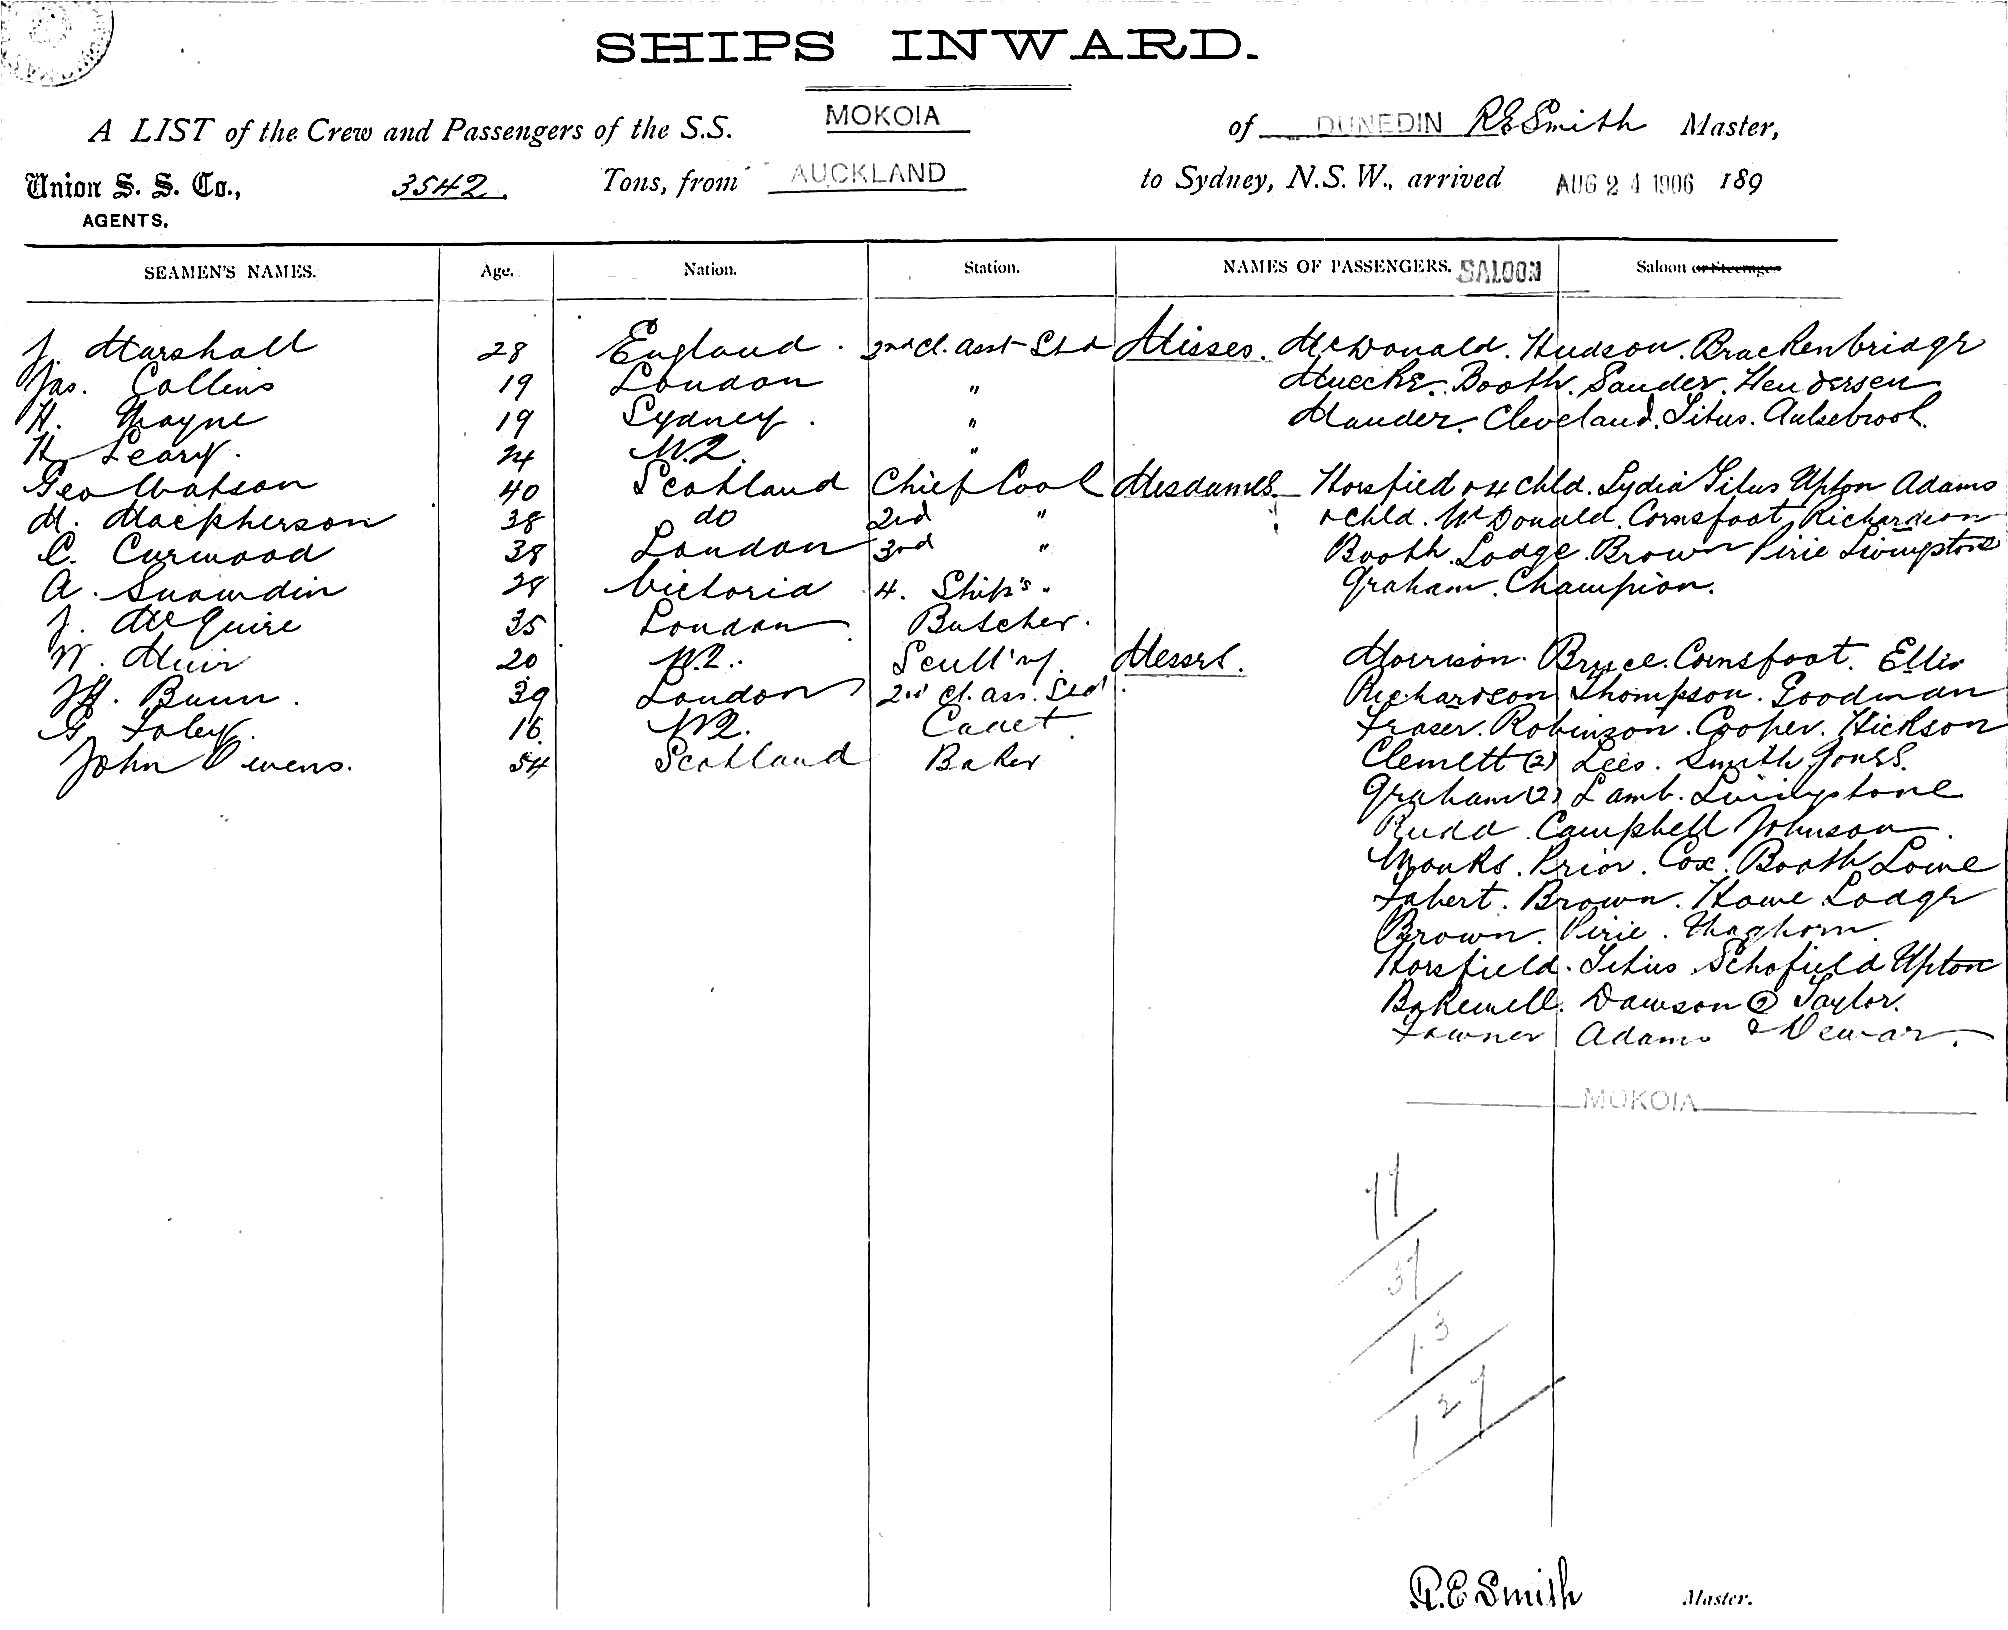 SHIPS INWARD.
A LIST of the Crew and Passengers of the S.S. MOKOIA of DUNEDIN R E Smith Master,
Union S. S. Co., 3542. Tons, from AUCKLAND to Sydney, N.S.W., arrived AUG 24 1906 189
AGENTS.
SEAMEN'S NAMES. Age. Nation. Station. NAMES OF PASSENGERS. SALOON Saloon or Steerage
J. Marshall 28 England. 2nd cl. asst Std Misses. McDonald. Hudson. Brackenbridge
Jas. Collins 19 London " Muecke. Booth. Sander. Hendersen
H. Mayne 19 Sydney. " Mander. Cleveland. Titus. Aulsebrook.
H Leary. 24 N.Z. "
Geo Watson 40 Scotland Chief Cook Mesdames. Horsfield & 4 chld. Lydia Titus Upton Adams
M. Mackherson 38 do 2nd " & chld. McDonald. Cornsfoot Richardson
C. Curwood 38 London 3rd " Booth. Lodge. Brown Pirie Livingstone
A. Snowdin 28 Victoria 4. Ship's " Graham. Champion.
J. McGuire 35 London Butcher.
W. Muir 20 N.Z. Scull'my. Messrs. Morrison. Bruce. Cornsfoot. Ellis
Bunn. 39 London 2nd cl. ass. Std Richardson Thompson. Goodman
G Foley. 16 N.Z. Cadet Fraser. Robinson. Cooper. Hickson
John Owens. 54 Scotland Baker Clemett (2) Lees. Smith. Jones.
Graham (2) Lamb. Livingstone
Rudd Campbell Johnson.
Monks. Prior. Cox. Booth Lowe
Brown. Howe Lodge
Brown. Pirie.
Horsfield. Titus Schofield Upton
Bakewell. Dawson (2) Taylor.
Adams & Dewar.
MOKOIA
77
37
13
127
R. E Smith Master.